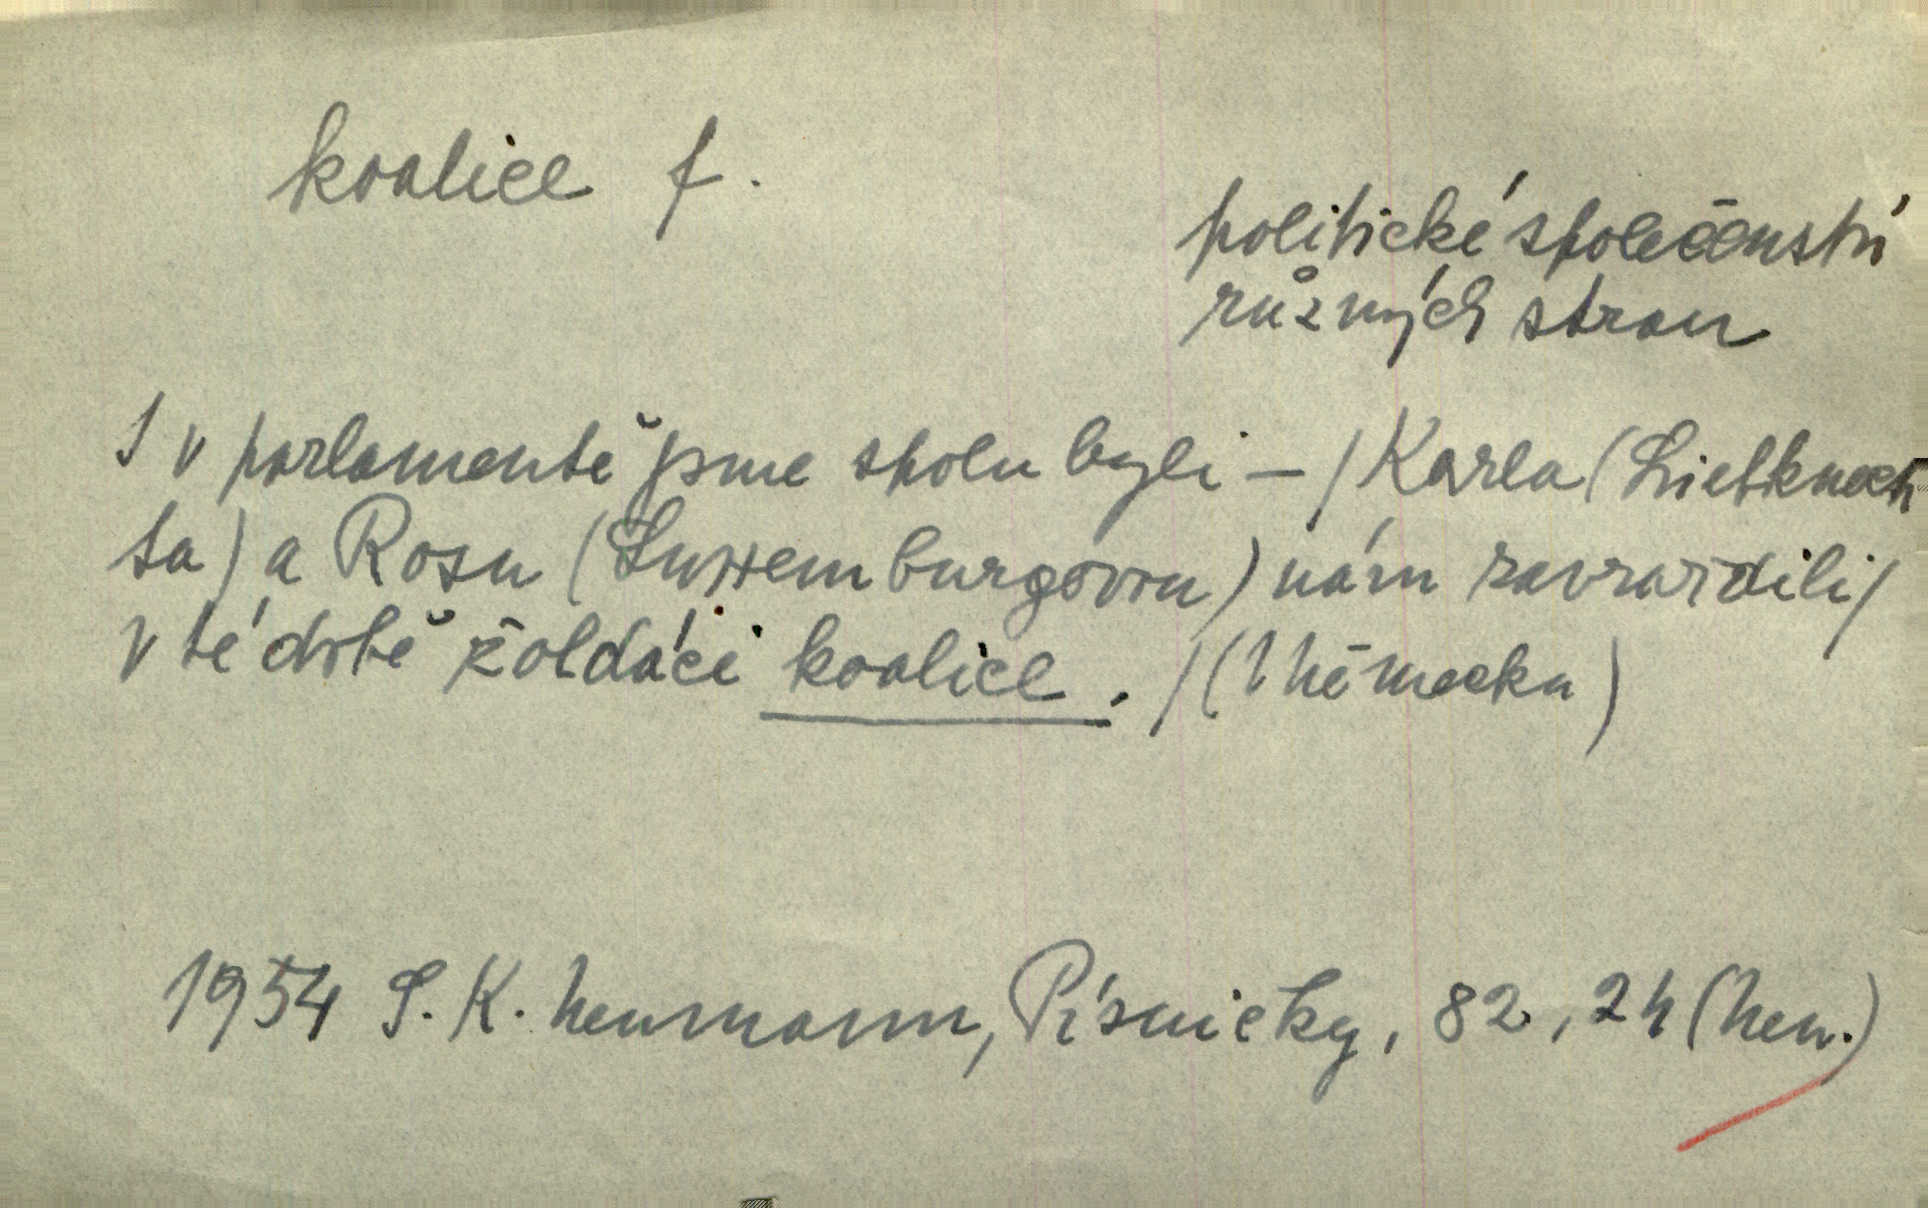 koalice f.
politické společenství
různých stran
I v parlamentě jsme spolu byli – / Karla (Liebknech
ta) a Rosu (Luxemburgovou) nám zavraždili /
v té době žoldáci koalice. / (V Německu)
1954 S. K. Neumann, Písničky, 82, 24 (Neu.)